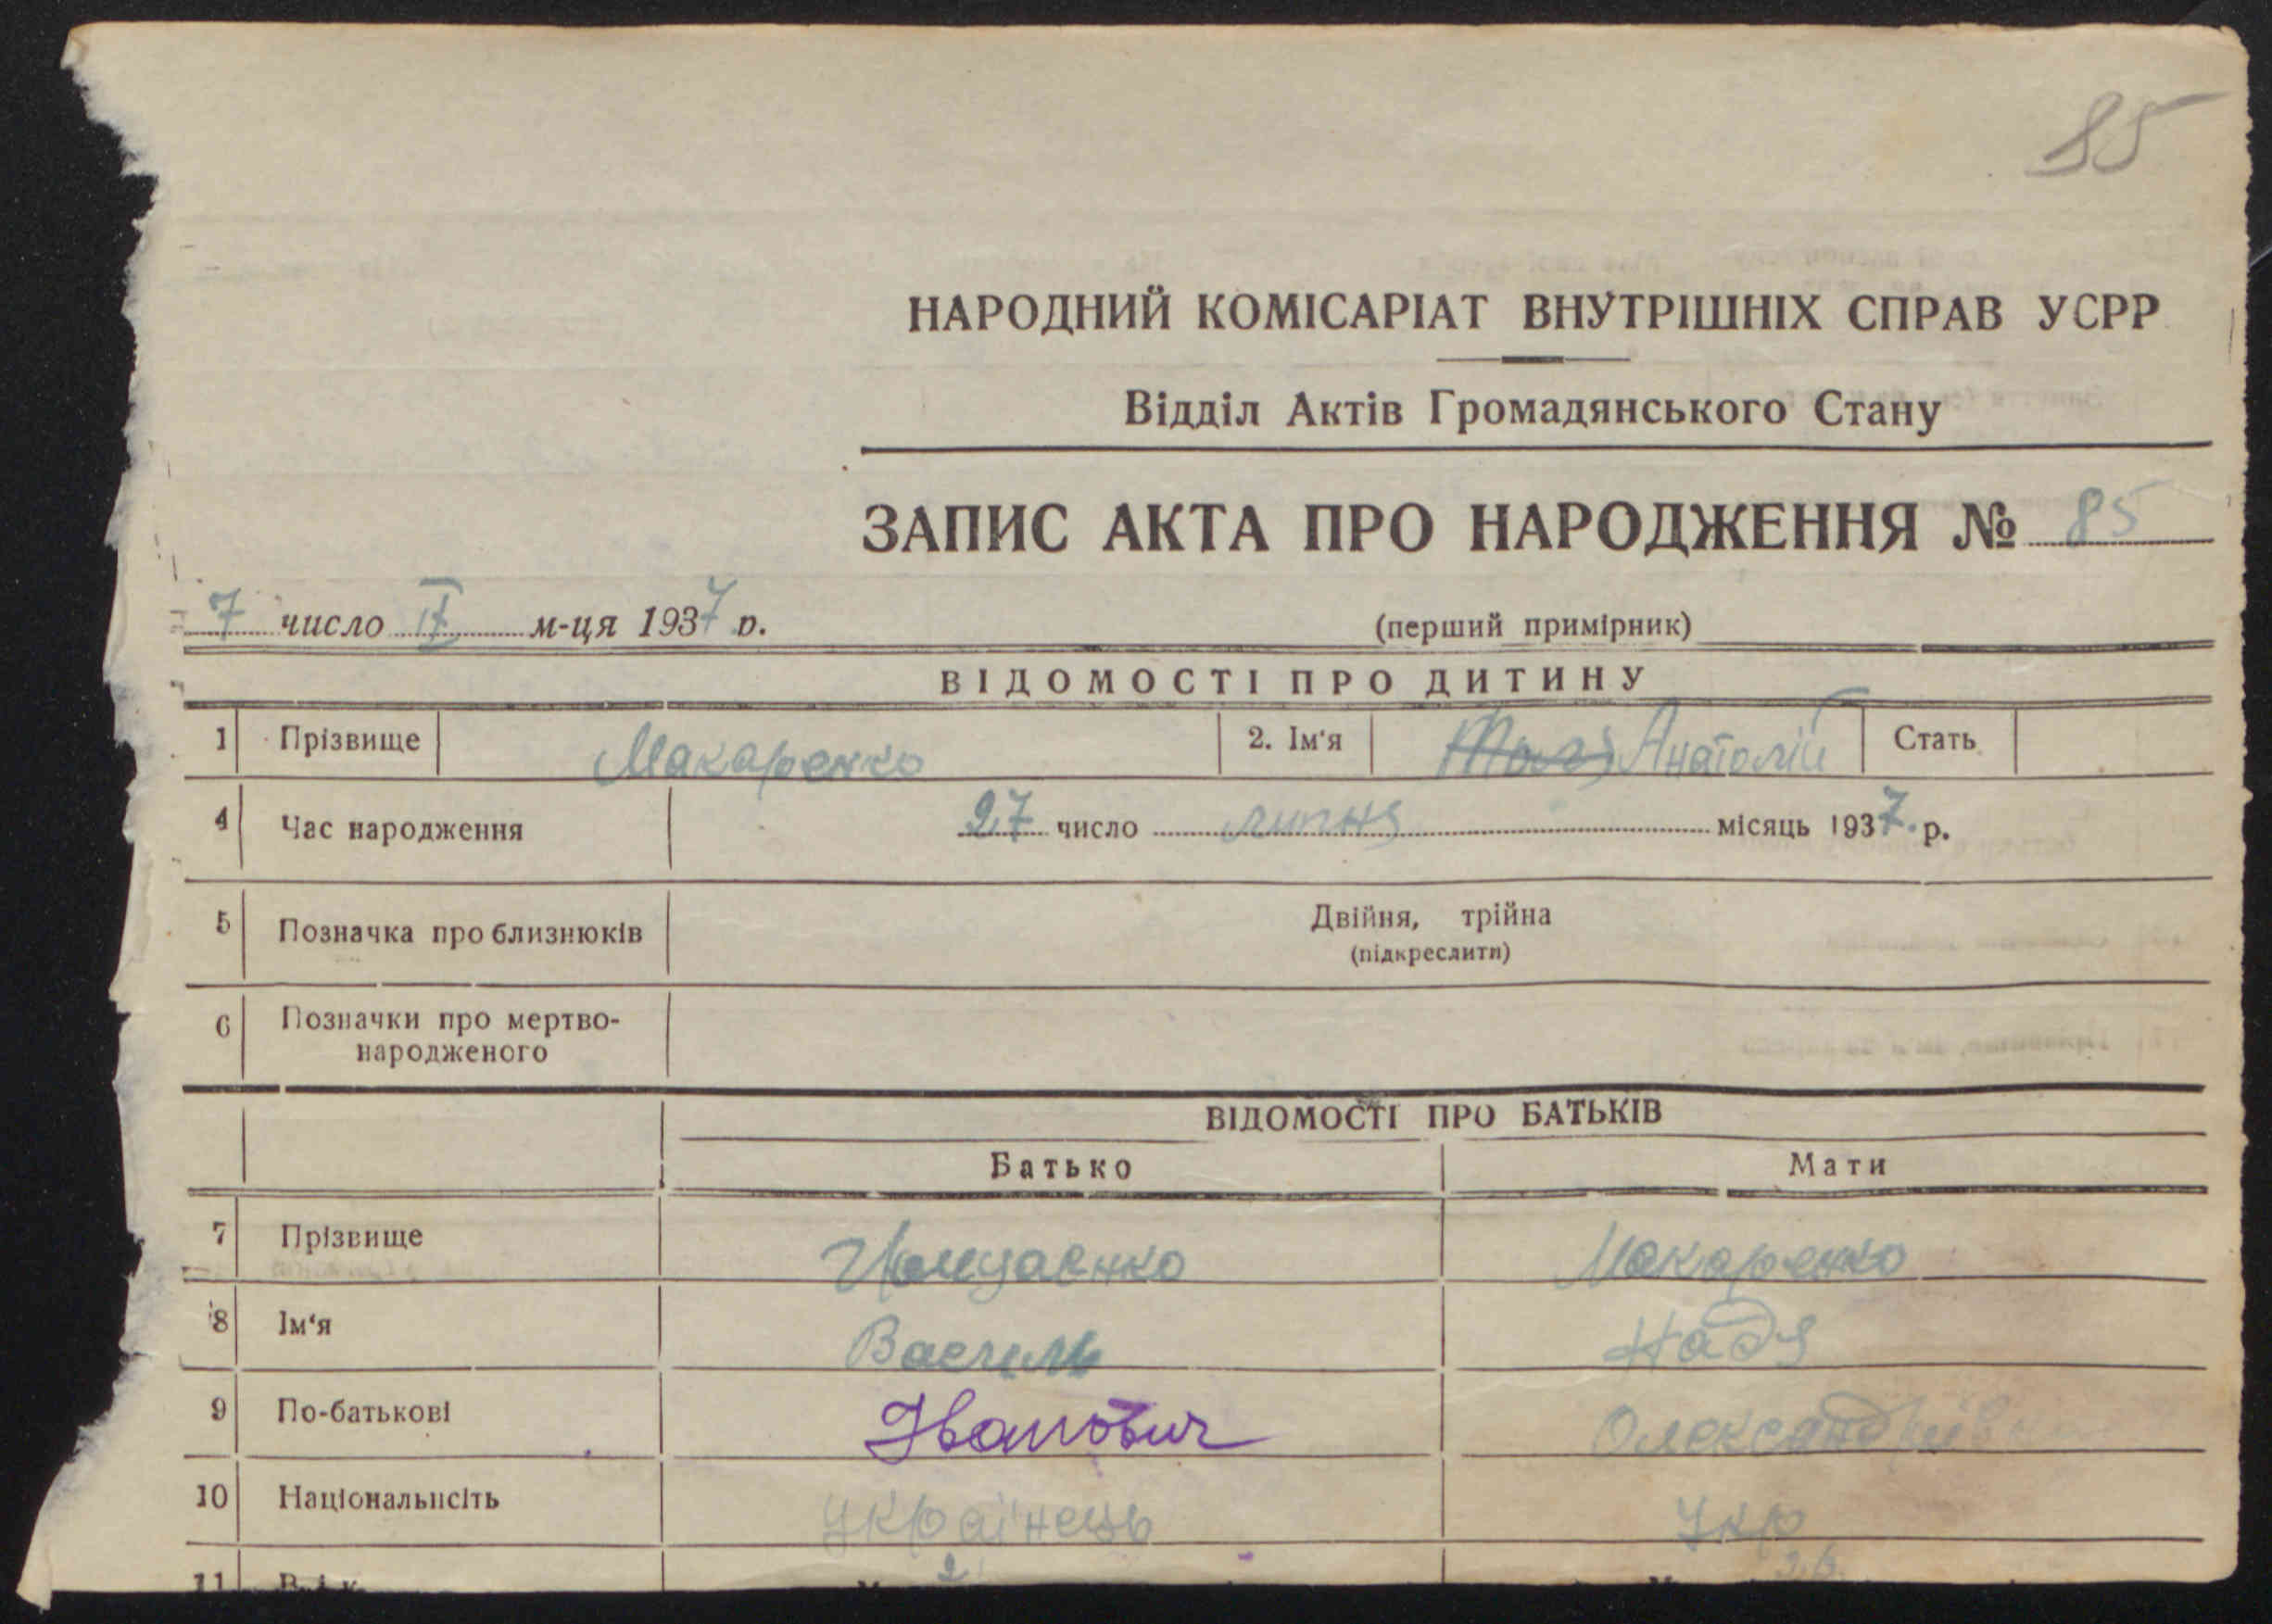 85
НАРОДНИЙ КОМІСАРІАТ ВНУТРІШНІХ СПРАВ УСРР
Відділ Актів Громадянського Стану
ЗАПИС АКТА ПРО НАРОДЖЕННЯ № 85
7 число IX м-ця 1937 р. (перший примірник)
ВІДОМОСТІ ПРО ДИТИНУ
1 Прізвище Макаренко 2. Ім'я Анатолій Стать
4 Час народження 27 число липня місяць 1937 р.
5 Позначка про близнюків Двійня, трійна
(підкреслити)
6 Позначки про мертво-
народженого
ВІДОМОСТІ ПРО БАТЬКІВ
Батько Мати
7 Прізвище Макаренко
8 Ім'я Василь Надя
9 По-батькові Іванович Олександрівна
10 Національнсіть Українець Укр
11 Вік